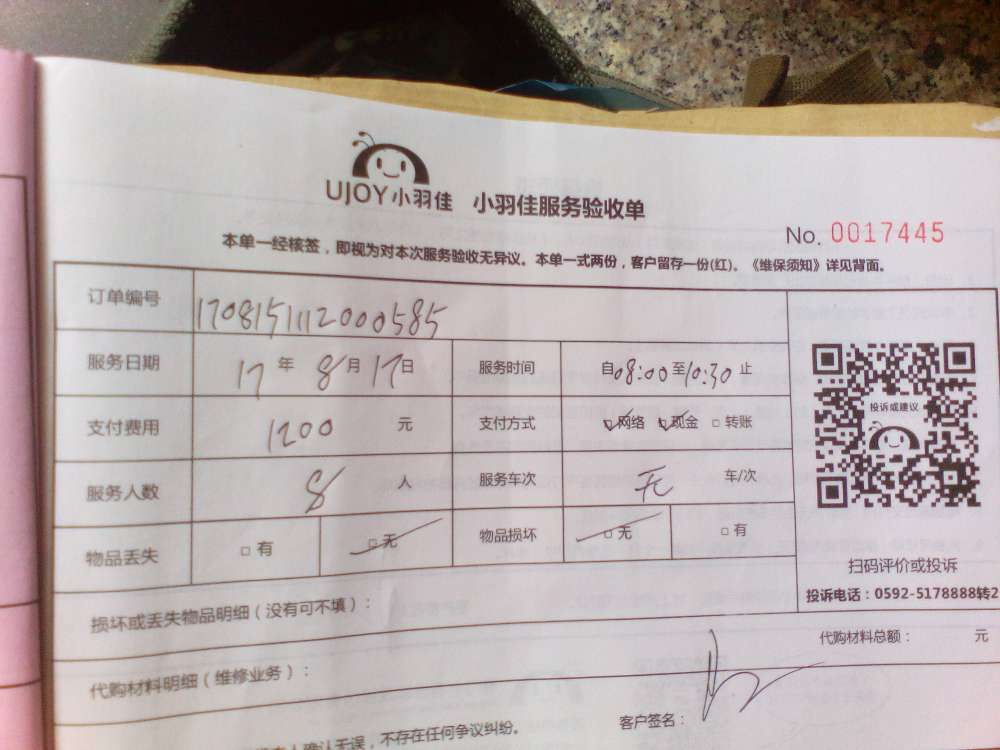 UJOY小羽佳 小羽佳服务验收单
No. 0017445
本单一经核签，即视为对本次服务验收无异议。本单一式两份，客户留存一份(红)。《维保须知》详见背面。
订单编号 1708151112000585
服务日期 17年8月17日 服务时间 自08:00至10:30止
支付费用 1200元 支付方式 网络 现金 转账
投诉或建议
服务人数 8人 服务车次 无 车/次
物品丢失 有 无 物品损坏 无 有
扫码评价或投诉
投诉电话：0592-5178888转2
损坏或丢失物品明细（没有可不填）：
代购材料总额： 元
代购材料明细（维修业务）：
客户签名：
人确认无误，不存在任何争议纠纷。